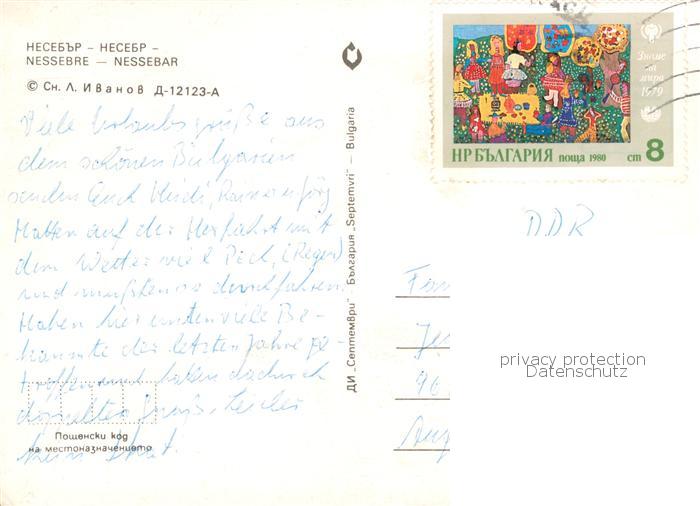 НЕСЕБЪР – НЕСЕБР –
NESSEBRE — NESSEBAR
© Сн. Л. Иванов Д-12123-А
Viele Urlaubsgrüße aus
dem schönen Bulgarien
senden Euch Heidi, Rainer u. Jörg
Hatten auf der Herfahrt mit
dem Wetter viel Pech, (Regen)
und mußten so durchfahren.
Haben hier unten viele Be-
kannte der letzten Jahre ge-
troffen und haben dadurch
doppelten Spaß. Leider
kein
Пощенски код
на местоназначението
ДИ „Септември" България „Septemvri" — Bulgaria
Знаме
на
мира
1979
НР БЪЛГАРИЯ поща 1980 ст 8
DDR
privacy protection
Datenschutz